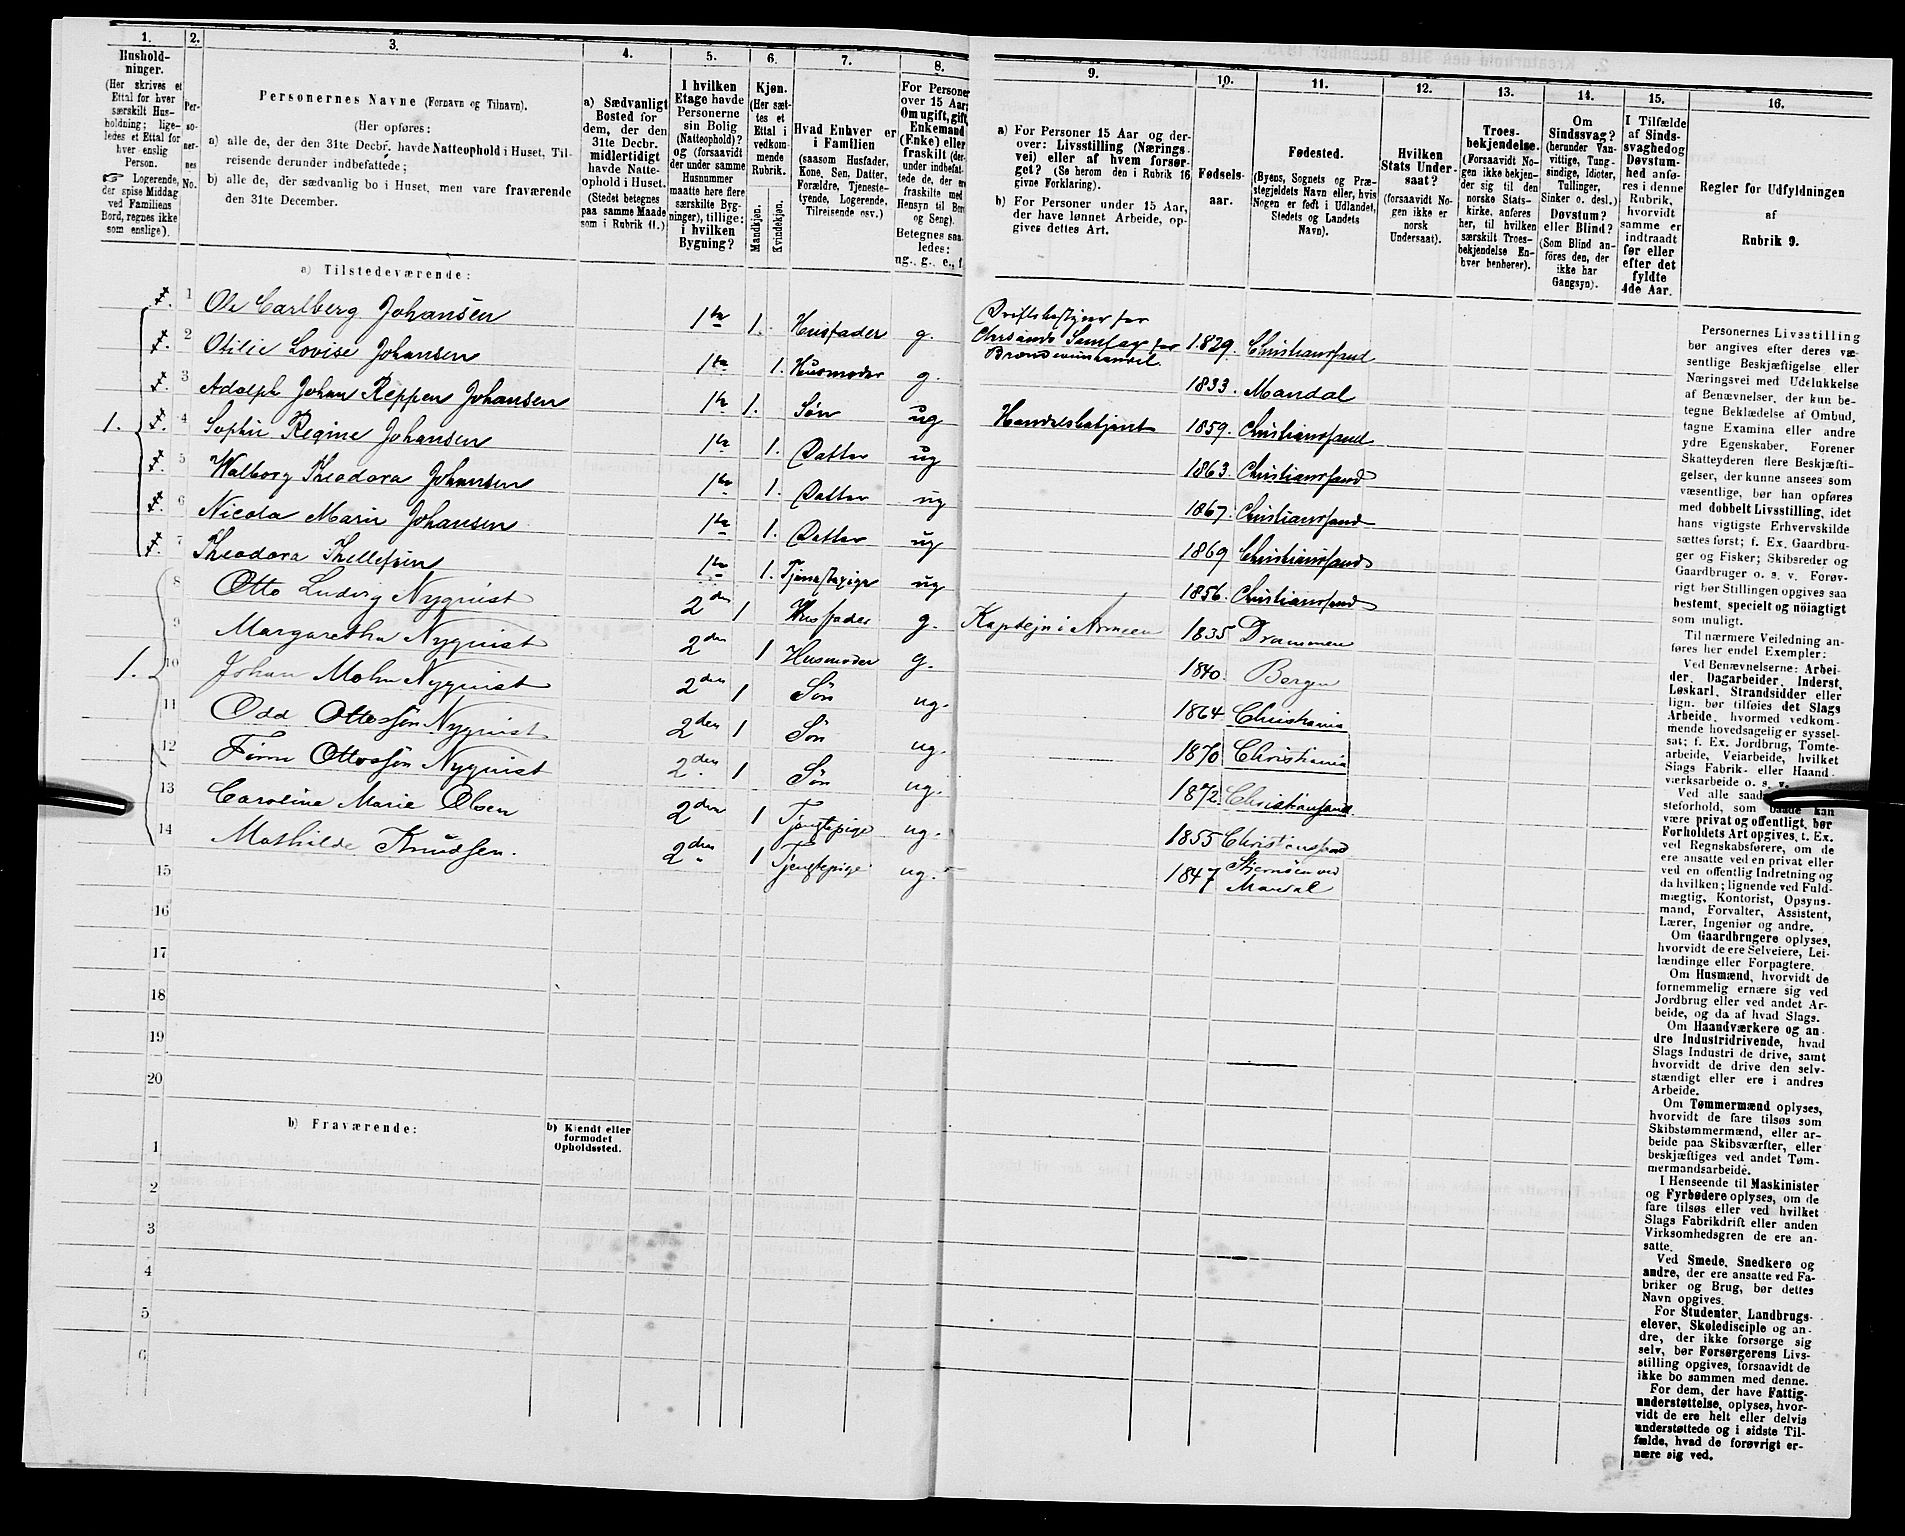 1.
Husholdninger.
(Her skrives et
Ettal for hver
særskilt Husholdning; ligeledes et Ettal for
hver enslig
Person.
☞ Logerende,
der spise Middag
ved Familiens
Bord, regnes ikke
som enslige).
2.
Personernes
No.
3.
Personernes Navne (Fornavn og Tilnavn).
(Her opføres:
a) alle de, der den 31te Decbr. havde Natteophold i Huset, Tilreisende derunder indbefattede;
b) alle de, der sædvanlig bo i Huset, men vare fraværende
den 31te December.
4.
a) Sædvanligt
Bosted for
dem, der den
31te Decbr.
midlertidigt
havde Natteophold i Huset.
(Stedet betegnes
paa samme Maade
som i Rubrik 11.)
5.
I hvilken
Etage havde
Personerne
sin Bolig
(Natteophold)?
og (forsaavidt
der under samme
Husnummer
maatte være flere
særskilte Bygninger), tillige:
i hvilken
Bygning?
6.
Kjøn.
(Her sættes et
Ettal i
vedkommende
Rubrik.)
Mandkjøn.
Kvindekjøn.
7.
Hvad Enhver er
i Familien
(saasom Husfader,
Kone, Søn, Datter,
Forældre, Tjenestetyende, Logerende,
Tilreisende osv.)
8.
For Personer
over 15 Aar:
Om ugift, gift,
Enkemand
(Enke) eller
fraskilt (derunder indbefattede de, der er
fraskilte med
Hensyn til Bord
og Seng).
Betegnes saaledes:
ug., g., e., f.
9.
a) For Personer 15 Aar og derover: Livsstilling (Næringsvei) eller af hvem forsørget? (Se herom den i Rubrik 16
givne Forklaring).
b) For Personer under 15 Aar,
der have lønnet Arbeide, opgives dettes Art.
10.
Fødselsaar.
11.
Fødested.
(Byens, Sognets og Præstegjeldets Navn eller, hvis
Nogen er født i Udlandet,
Stedets og Landets
Navn).
12.
Hvilken
Stats Undersaat?
(forsaavidt Nogen ikke er
norsk
Undersaat).
13.
Troesbekjendelse.
(Forsaavidt Nogen ikke bekjender sig til den
norske Statskirke, anføres
her, til hvilken
særskilt Troesbekjendelse Enhver henhører).
14.
Om
Sindssvag?
(herunder Vanvittige, Tungsindige, Idioter,
Tullinger,
Sinker o. desl.)
Døvstum?
eller Blind?
(Som Blind anføres den, der
ikke har
Gangsyn).
15.
I Tilfælde
af Sindssvaghed og
Døvstumhed anføres i denne
Rubrik,
hvorvidt
samme er
indtraadt
før eller
efter det
fyldte
4de Aar.
16.
Regler for Udfyldningen
af
Rubrik 9.
a) Tilstedeværende:
1 Ole Carlberg Johansen 1ste 1. Husfader g. Driftsbestyrer for Chrsands Samlag for Brændeviinshandel 1829. Christianssand
2 Otilie Lovise Johansen 1ste 1. Husmoder g. 1833. Mandal
3 Adolph Johan Reppen Johansen 1ste 1. Søn ug Handelsbetjent 1859. Christianssand
1. 4 Sophie Regine Johansen 1ste 1. Datter ug 1863. Christianssand
5 Walborg Theodora Johansen 1ste 1. Datter ug 1867. Christianssand
6 Nicola Marie Johansen 1ste 1. Datter ug 1869 Christianssand
7 Theodora Thellefsen 1ste 1. Tjenestepige ug 1856. Christianssand
8 Otto Ludvig Nyquist 2den 1 Husfader g. Kaptejn i Armeen 1835 Drammen
9 Margaretha Nyquist 2den 1 Husmoder g. 1840. Bergen
1. 10 Johan Mohn Nyquist 2den 1 Søn ug. 1864 Christiania
11 Odd Ottossøn Nyquist 2den 1 Søn ug. 1870 Christiania
12 Finn Ottossøn Nyquist 2den 1 Søn ug. 1872. Christianssand
13 Caroline Marie Olsen 2den 1 Tjenstepige ug. 1855 Christianssand
14 Mathilde Knudsen. 2den 1 Tjenstepige ug. 1847 Mandal
15
16
17
18
19
20
b) Fraværende:
b) Kjendt eller
formodet
Opholdssted.
1
2
3
4
5
6
Personernes Livsstilling
bør angives efter deres væsentlige Beskjæftigelse eller
Næringsvei med Udelukkelse
af Benævnelser, der kun betegne Beklædelse af Ombud,
tagne Examina eller andre
ydre Egenskaber. Forener
Skatteyderen flere Beskjæftigelser, der kunne ansees som
væsentlige, bør han opføres
med dobbelt Livsstilling, idet
hans vigtigste Erhvervskilde
sættes først; f. Ex. Gaardbruger og Fisker; Skibsreder og
Gaardbruger o. s. v. Forøvrigt bør Stillingen opgives saa
bestemt, specielt og nöiagtigt
som muligt.
Til nærmere Veiledning anføres her endel Exempler:
Ved Benævnelserne: Arbeider, Dagarbeider, Inderst,
Løskarl, Strandsidder eller
lign. bør tilføies det Slags
Arbeide, hvormed vedkommende hovedsagelig er sysselsat; f. Ex. Jordbrug, Tomtearbeide, Veiarbeide, hvilket
Slags Fabrik- eller Haandværksarbeide o. s. v.
Ved alle saadanne
steforhold, som baade kan
være privat og offentligt, bør
Forholdets Art opgives, t. Ex.
ved Regnskabsførere, om de
ere ansatte ved en privat eller
ved en offentlig Indretning og
da hvilken; lignende ved Fuldmægtig, Kontorist, Opsynsmand, Forvalter, Assistent,
Lærer, Ingeniør og andre.
Om Gaardbrugere oplyses,
hvorvidt de ere Selveiere, Leilændinge eller Forpagtere.
Om Husmænd, hvorvidt de
fornemmelig ernære sig ved
Jordbrug eller ved andet Arbeide, og da af hvad Slags.
Om Haandværkere og andre Industridrivende, hvad
Slags Industri de drive, samt
hvorvidt de drive den selvstændigt eller ere i andres
Arbeide.
Om Tømmermænd oplyses,
hvorvidt de fare tilsøs som
Skibstømmermænd, eller arbeide paa Skibsværfter, eller
beskjæftiges ved andet Tømmermandsarbeide.
I Henseende til Maskinister
og Fyrbødere oplyses, om de
fare tilsøs eller ved hvilket
Slags Fabrikdrift eller anden
Virksomhedsgren de ere ansatte.
Ved Smede, Snedkere og
andre, der ere ansatte ved Fabriker og Brug, bør dettes
Navn opgives.
For Studenter, Landbrugselever, Skoledisciple og andre, der ikke forsørge sig
selv, bør Forsørgerens Livsstilling opgives, forsaavidt de
ikke bo sammen med denne.
For dem, der have Fattigunderstøttelse, oplyses, hvorvidt de ere helt eller delvis
understøttede og i sidste Tilfælde, hvad de forøvrigt ernære sig ved.